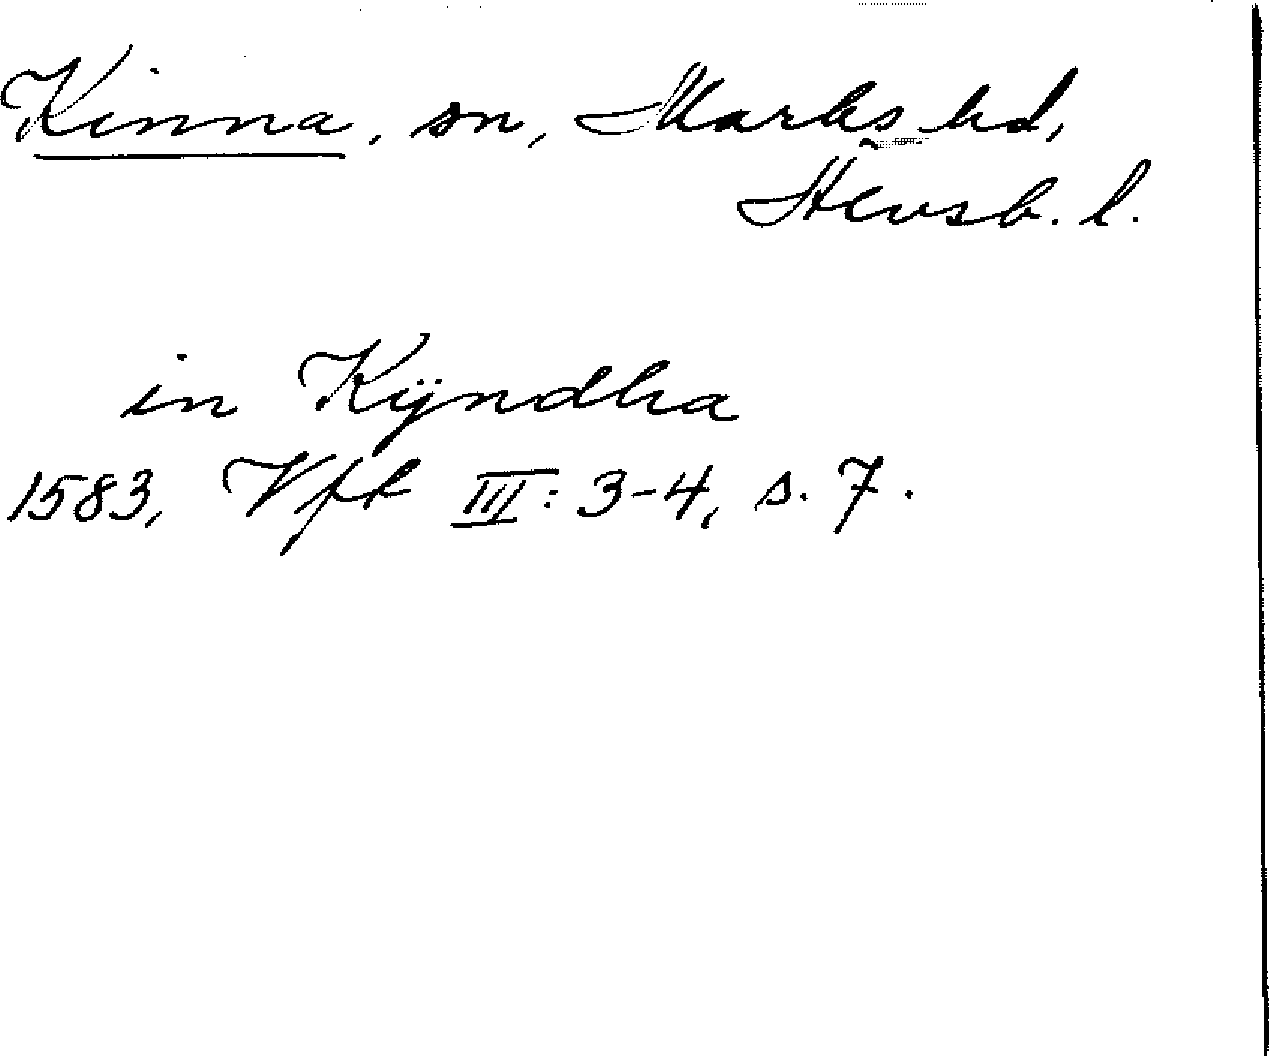 Kinna, sn, Marks hd,
Älvsb. l.
in Kÿndha
1583, Vfk III: 3-4, s. 7.